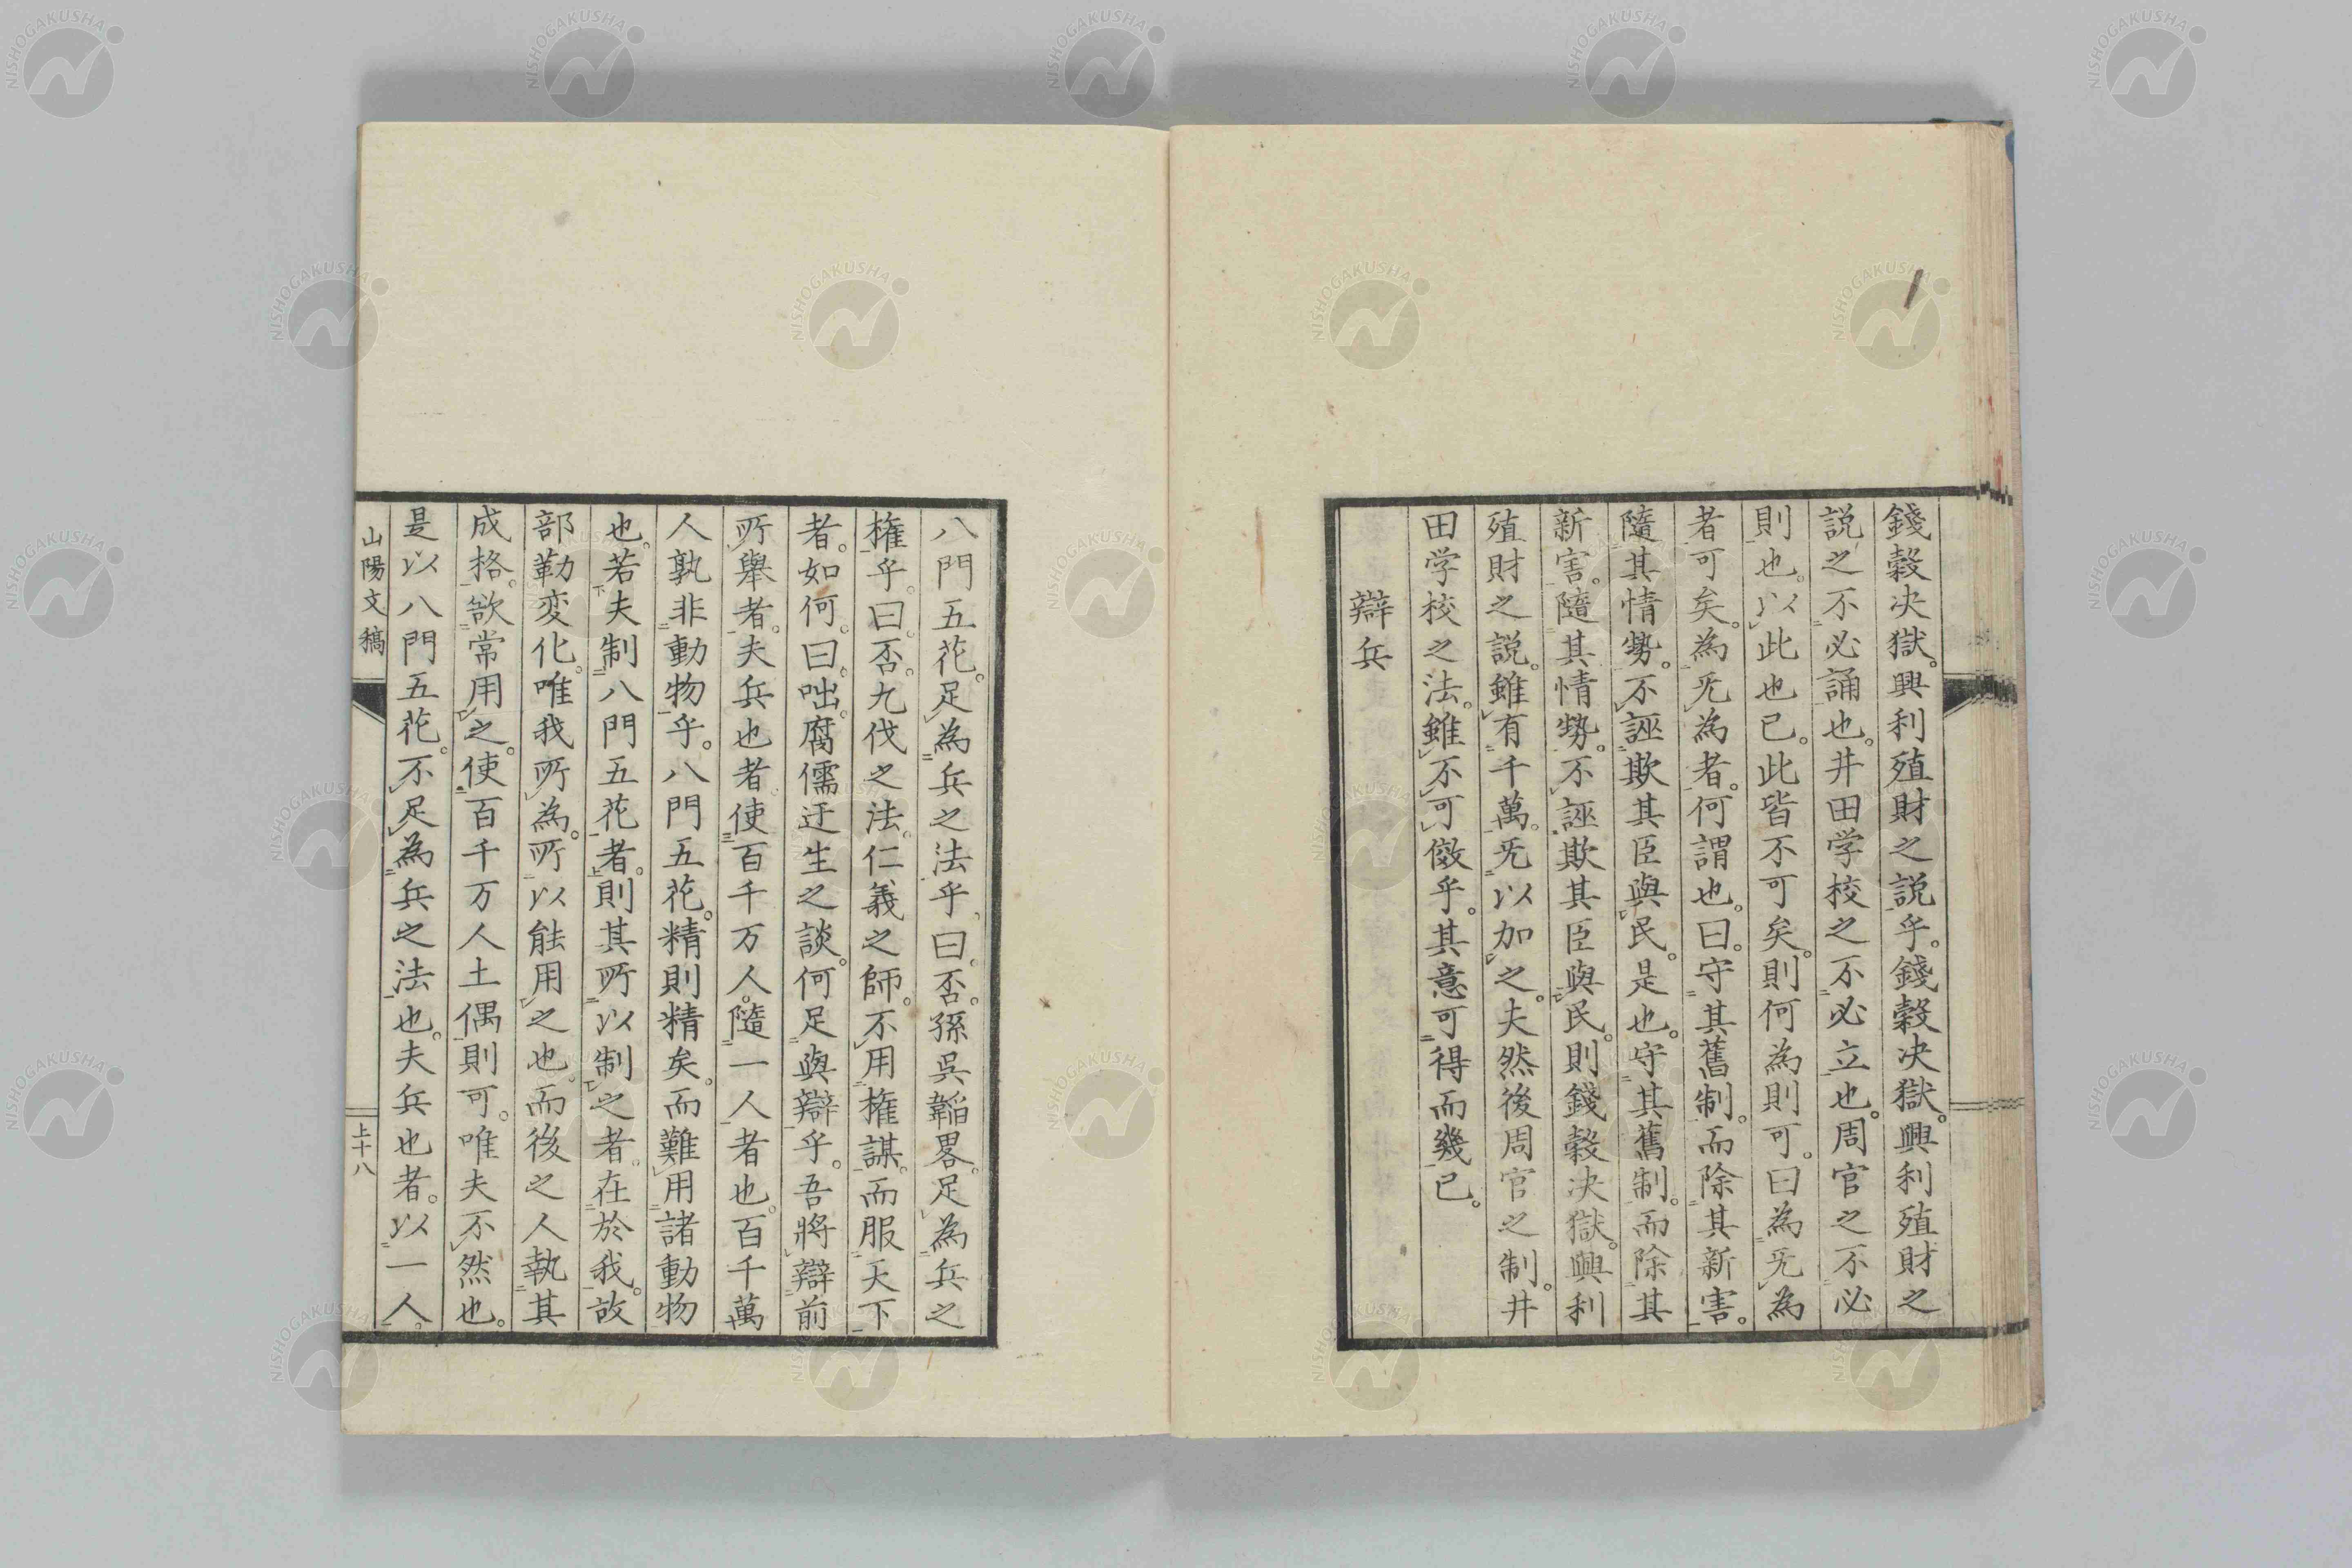 錢穀决獄。興利殖財之説乎。錢穀决獄。興利殖財之
説之不必誦也。井田学校之不必立也。周官之不必
則也。以此也已。此皆不可矣。則何為則可。曰為旡為
者可矣。為旡為者。何謂也。曰。守其舊制。而除其新害。
隨其情勢。不誣欺其臣與民。是也。守其舊制。而除其
新害。隨其情勢。不誣欺其臣與民。則錢穀决獄。興利
殖財之説。雖有千萬。旡以加之。夫然後周官之制。井
田学校之法。雖不可倣乎。其意可得而幾已。
辯兵
八門五花。足為兵之法乎、曰。否。孫吳韜畧。足為兵之
権乎。曰。否。九伐之法。仁義之師。不用権謀。而服天下
者。如何。曰。咄。腐儒迂生之談。何足與辯乎。吾將辯前
所舉者。夫兵也者使百千万人。隨一人者也。百千萬
人孰非動物乎。八門五花。精則精矣。而難用諸動物
也。若夫制八門五花者。則其所以制之者。在於我。故
部勒変化。唯我所為。所以能用之也。而後之人執其
成格。欲常用之。使百千万人土偶則可。唯夫不然也。
是以八門五花。不足為兵之法也。夫兵也者。以一人。
山陽文稿
上十八
NISHOGAKUSHA